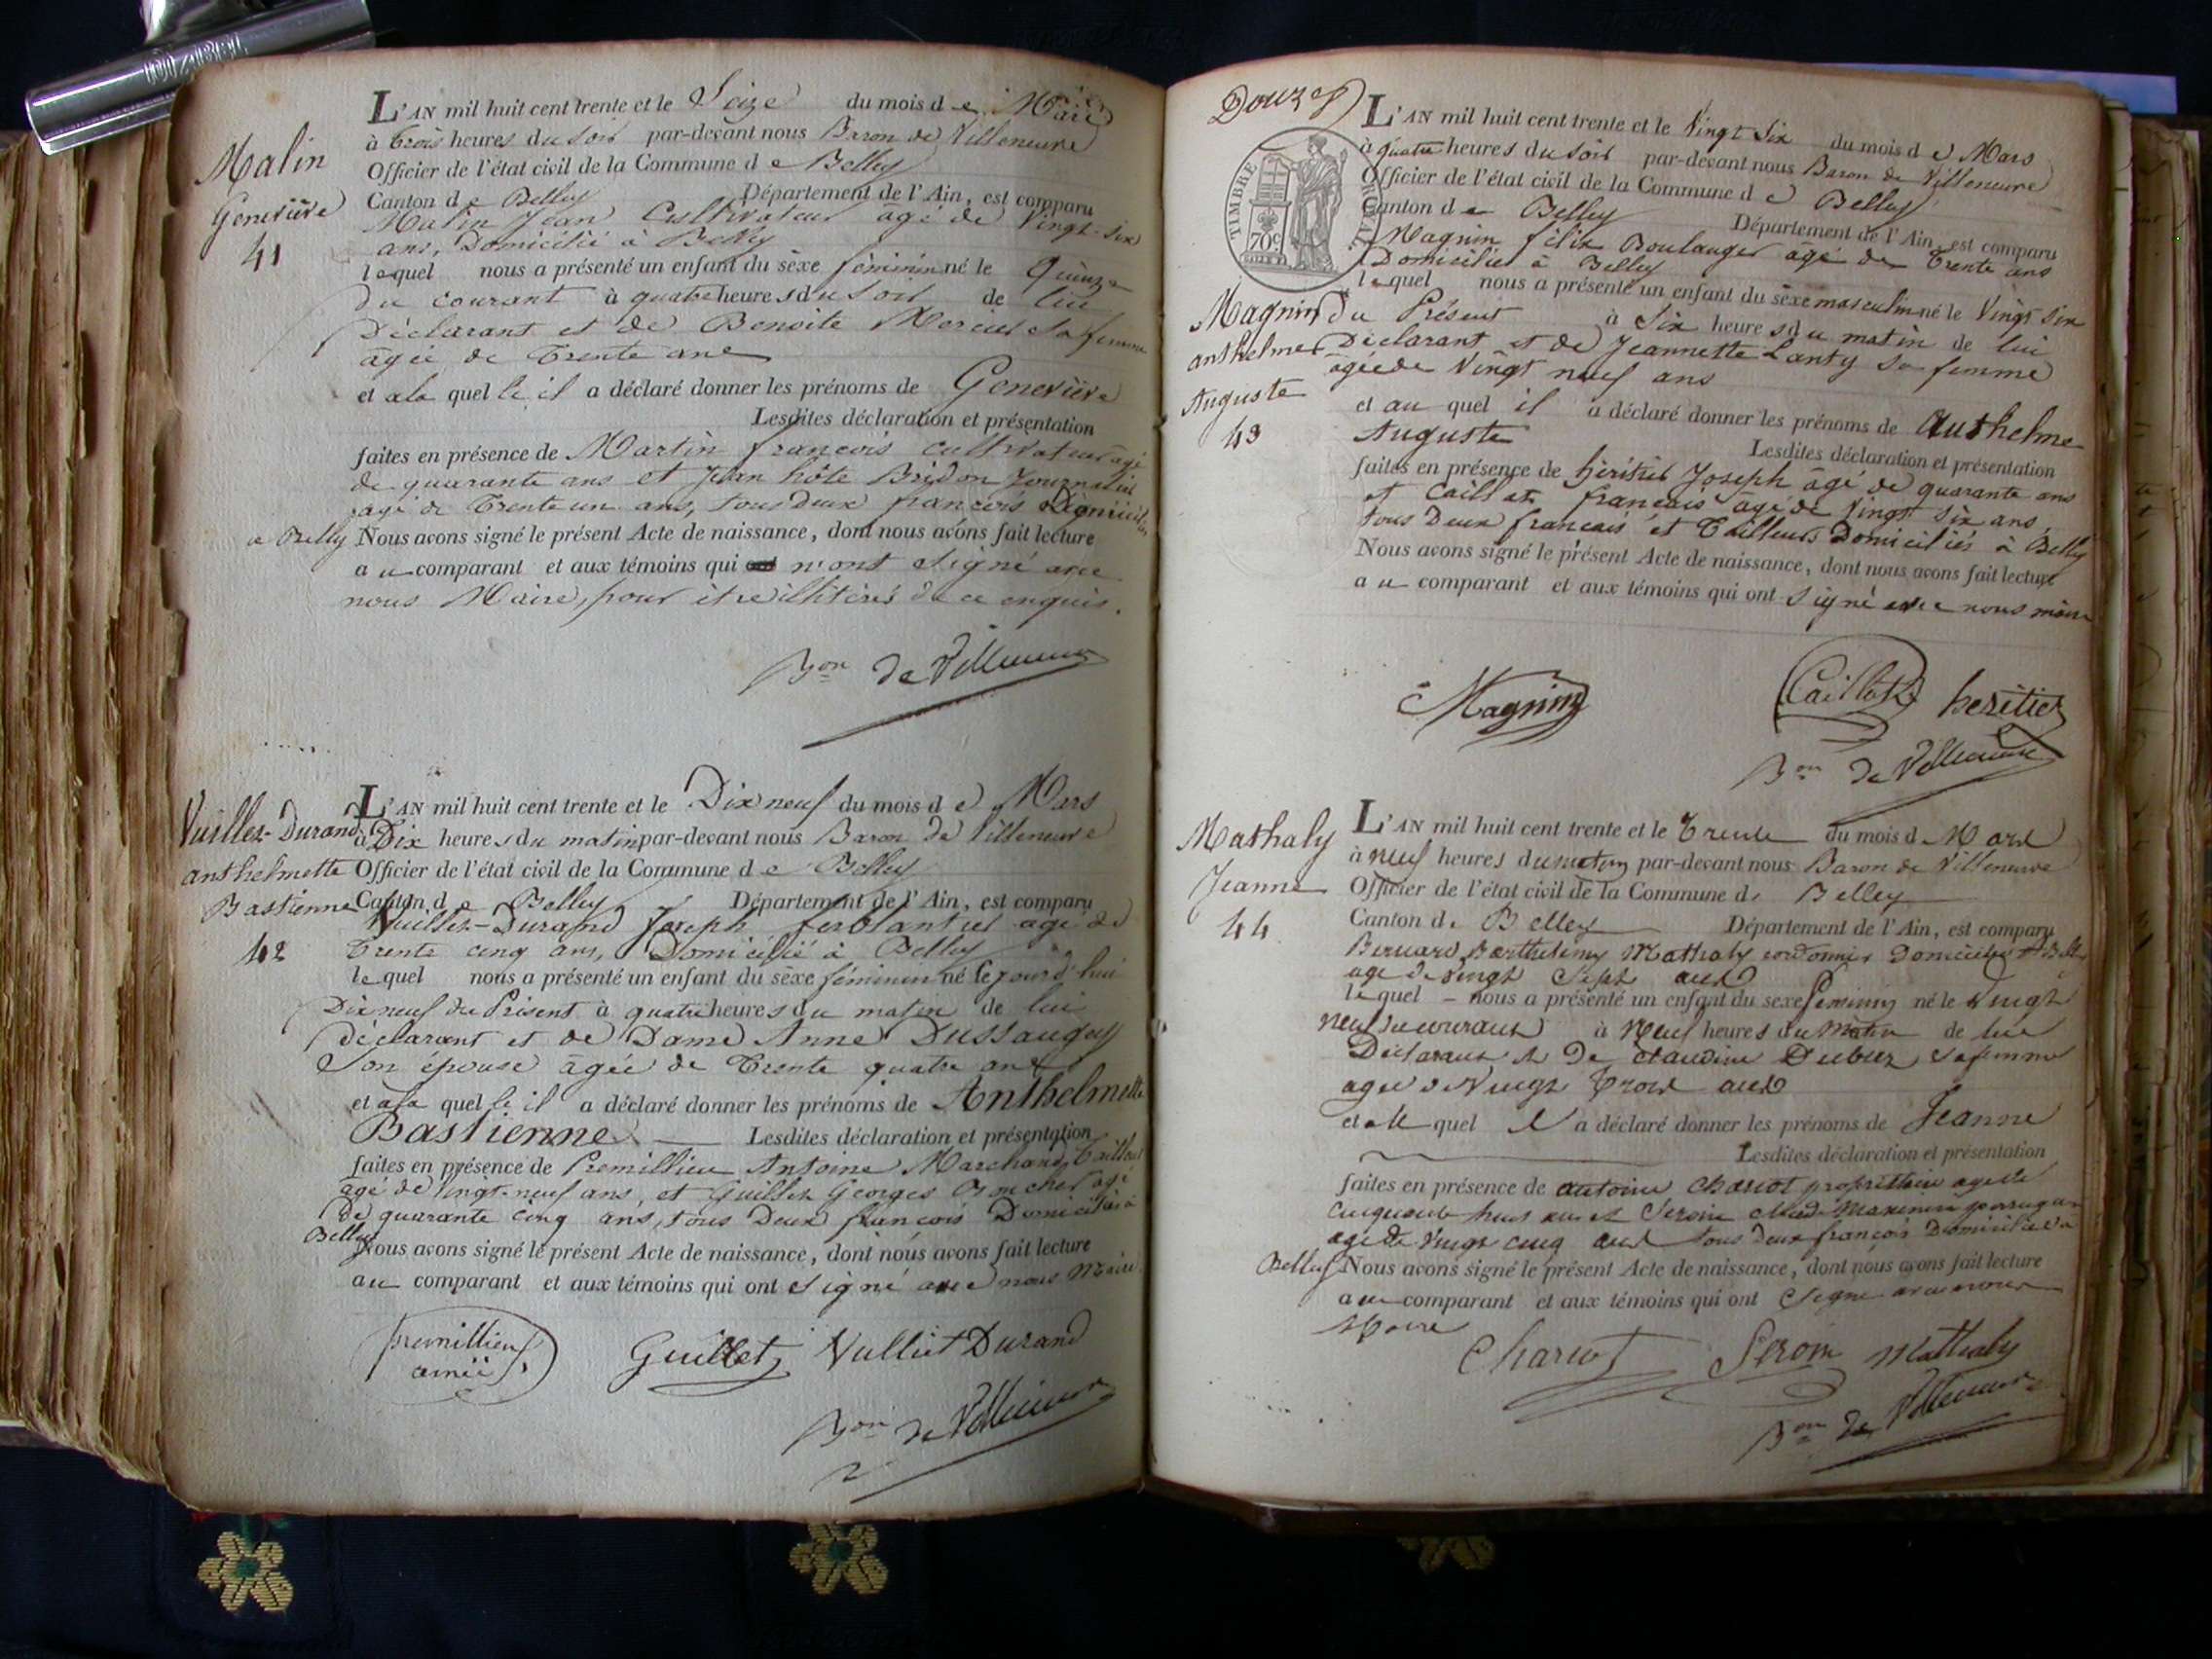 L'AN mil huit cent trente et le Seize du mois de Mars
à trois heures du soir par-devant nous Baron de Villeneuve
Officier de l'état civil de la Commune de Belley
Canton de Belley Département de l'Ain, est comparu
Malin Jean Cultivateur âgé de Vingt-six
ans, Domicilié à Belley
lequel nous a présenté un enfant du sèxe féminin né le Quinze
du courant à quatre heures du soir de lui
Déclarant et de Benoite Mercier sa femme
âgée de trente ans
et à la quelle il a déclaré donner les prénoms de Geneviève
Lesdites déclaration et présentation
faites en présence de Martin françois cultivateur âgé
de quarante ans et Jean hôte Bridon Journalier
âgé de trente un ans, tous Deux françois Domiciliés
a Belley Nous avons signé le présent Acte de naissance, dont nous avons fait lecture
au comparant et aux témoins qui n'ont signé avec
nous Maire, pour être illitérés de ce enquis.
Malin
Geneviève
41
Bon de Villeneuve
L'AN mil huit cent trente et le Dix neuf du mois de Mars
à Dix heures du matin par-devant nous Baron de Villeneuve
Officier de l'état civil de la Commune de Belley
Canton de Belley Département de l'Ain, est comparu
Vuillet-Durand Joseph ferblantier agé de
trente cinq ans, Domicilié à Belley
lequel nous a présenté un enfant du sèxe féminin né ce jourd'hui
Dix neuf du Présent à quatre heures du matin de lui
déclarant et de Dame Anne Dussauguey
Son épouse âgée de trente quatre ans
et à la quelle il a déclaré donner les prénoms de Anthelmette
Bastienne Lesdites déclaration et présentation
faites en présence de Premillieu Antoine Marchand Tailleur
âgé de Vingt-neuf ans, et Guillet Georges Boucher âgé
de quarante cinq ans, tous Deux françois Domiciliés à
Belley
Nous avons signé le présent Acte de naissance, dont nous avons fait lecture
au comparant et aux témoins qui ont signé avec nous Maire.
Vuillet-Durand
anthelmette
Bastienne
42
premillieu
ainée
Guillet Vulliet Durand
Bon de Villeneuve
Douze
TIMBRE ROYAL
70c
L'AN mil huit cent trente et le Vingt Six du mois de Mars
à quatre heures du soir par-devant nous Baron de Villeneuve
Officier de l'état civil de la Commune de Belley
Canton de Belley Département de l'Ain, est comparu
Magnin félix Boulanger âgé de trente ans
Domicilié à Belley
lequel nous a présenté un enfant du sèxe masculin né le Vingt six
du Présent à Six heures du matin de lui
Déclarant et de Jeannette Lanty sa femme
âgée de Vingt neuf ans
et au quel il a déclaré donner les prénoms de Anthelme
Auguste Lesdites déclaration et présentation
faites en présence de héritier Joseph âgé de quarante ans
et Caillat françois âgé de Vingt six ans,
tous Deux francais et Tailleurs Domiciliés à Belley
Nous avons signé le présent Acte de naissance, dont nous avons fait lecture
au comparant et aux témoins qui ont signé avec nous maire
Magnin
anthelme
Auguste
43
Magnin Caillat heritier
Bon de Villeneuve
L'AN mil huit cent trente et le Trente du mois d Mars
à neuf heures du matin par-devant nous Baron de Villeneuve
Officier de l'état civil de la Commune de Belley
Canton de Belley Département de l'Ain, est comparu
Bernard Barthelemy Mathaly cordonnier Domicilié à Belley
age de vingt Sept ans
lequel nous a présenté un enfant du sexe feminin né le Vingt
neuf du courant à Neuf heures du Matin de lui
Déclarant et de Claudine Dubuez sa femme
agee de Vingt Trois ans
et a la quel il a déclaré donner les prénoms de Jeanne
Lesdites déclaration et présentation
faites en présence de antoine Chariot propriétaire age de
cinquante huit ans et Seroin Maximin perruquier
age de Vingt cinq ans tous deux françois Domiciliés à
Belley Nous avons signé le présent Acte de naissance, dont nous avons fait lecture
au comparant et aux témoins qui ont Signé avec nous
Maire
Mathaly
Jeanne
44
Chariot Seroin Mathaly
Bon de Villeneuve